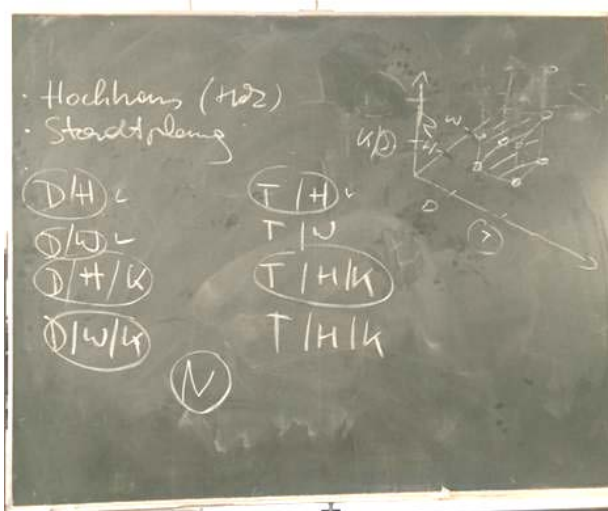 · Hochhaus (Holz)
· Stadtplanung
D/H
D/W
D/H/K
D/W/K
T/H
T/W
T/H/K
T/H/K
N
W
H
D